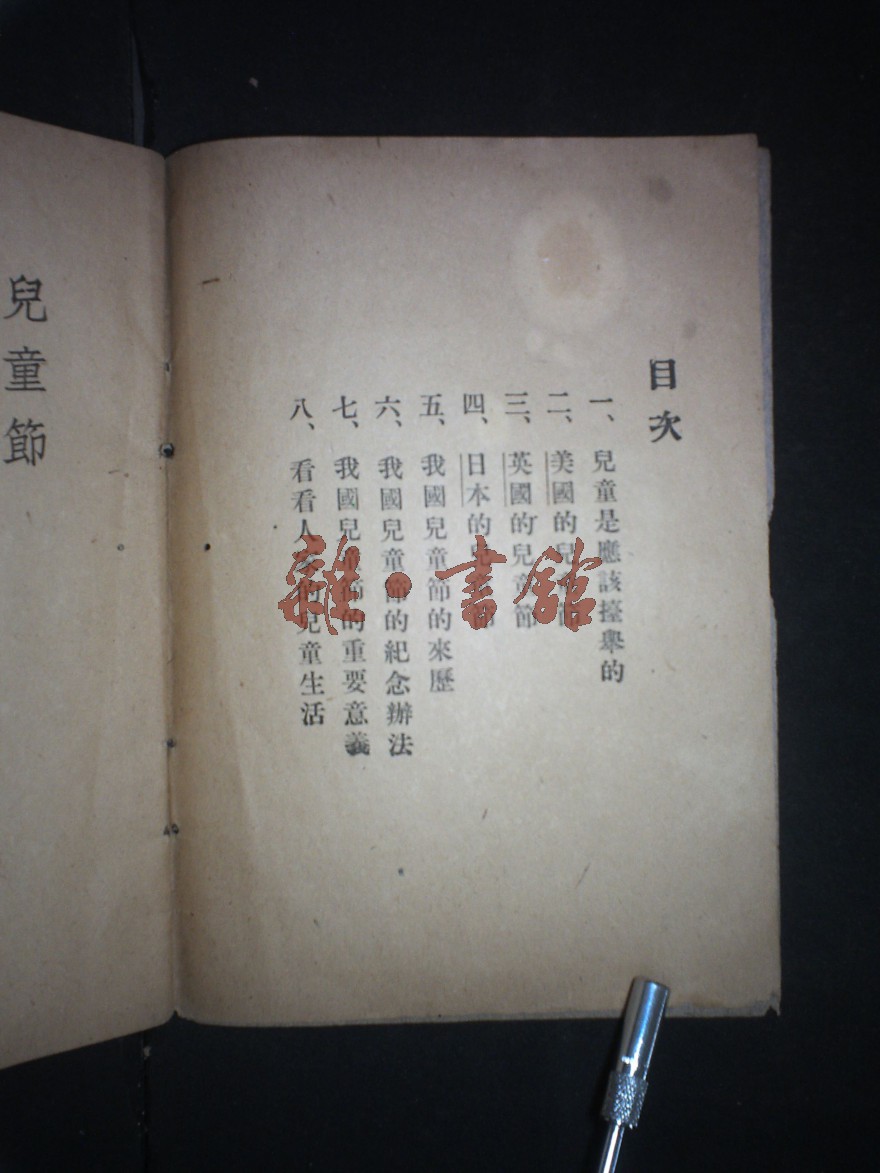 目次
一、兒童是應該擡舉的
二、美國的兒童節
三、英國的兒童節
四、日本的兒童節
五、我國兒童節的來歷
六、我國兒童節的紀念辦法
七、我國兒童節的重要意義
八、看看人家的兒童生活
兒童節
雜·書館